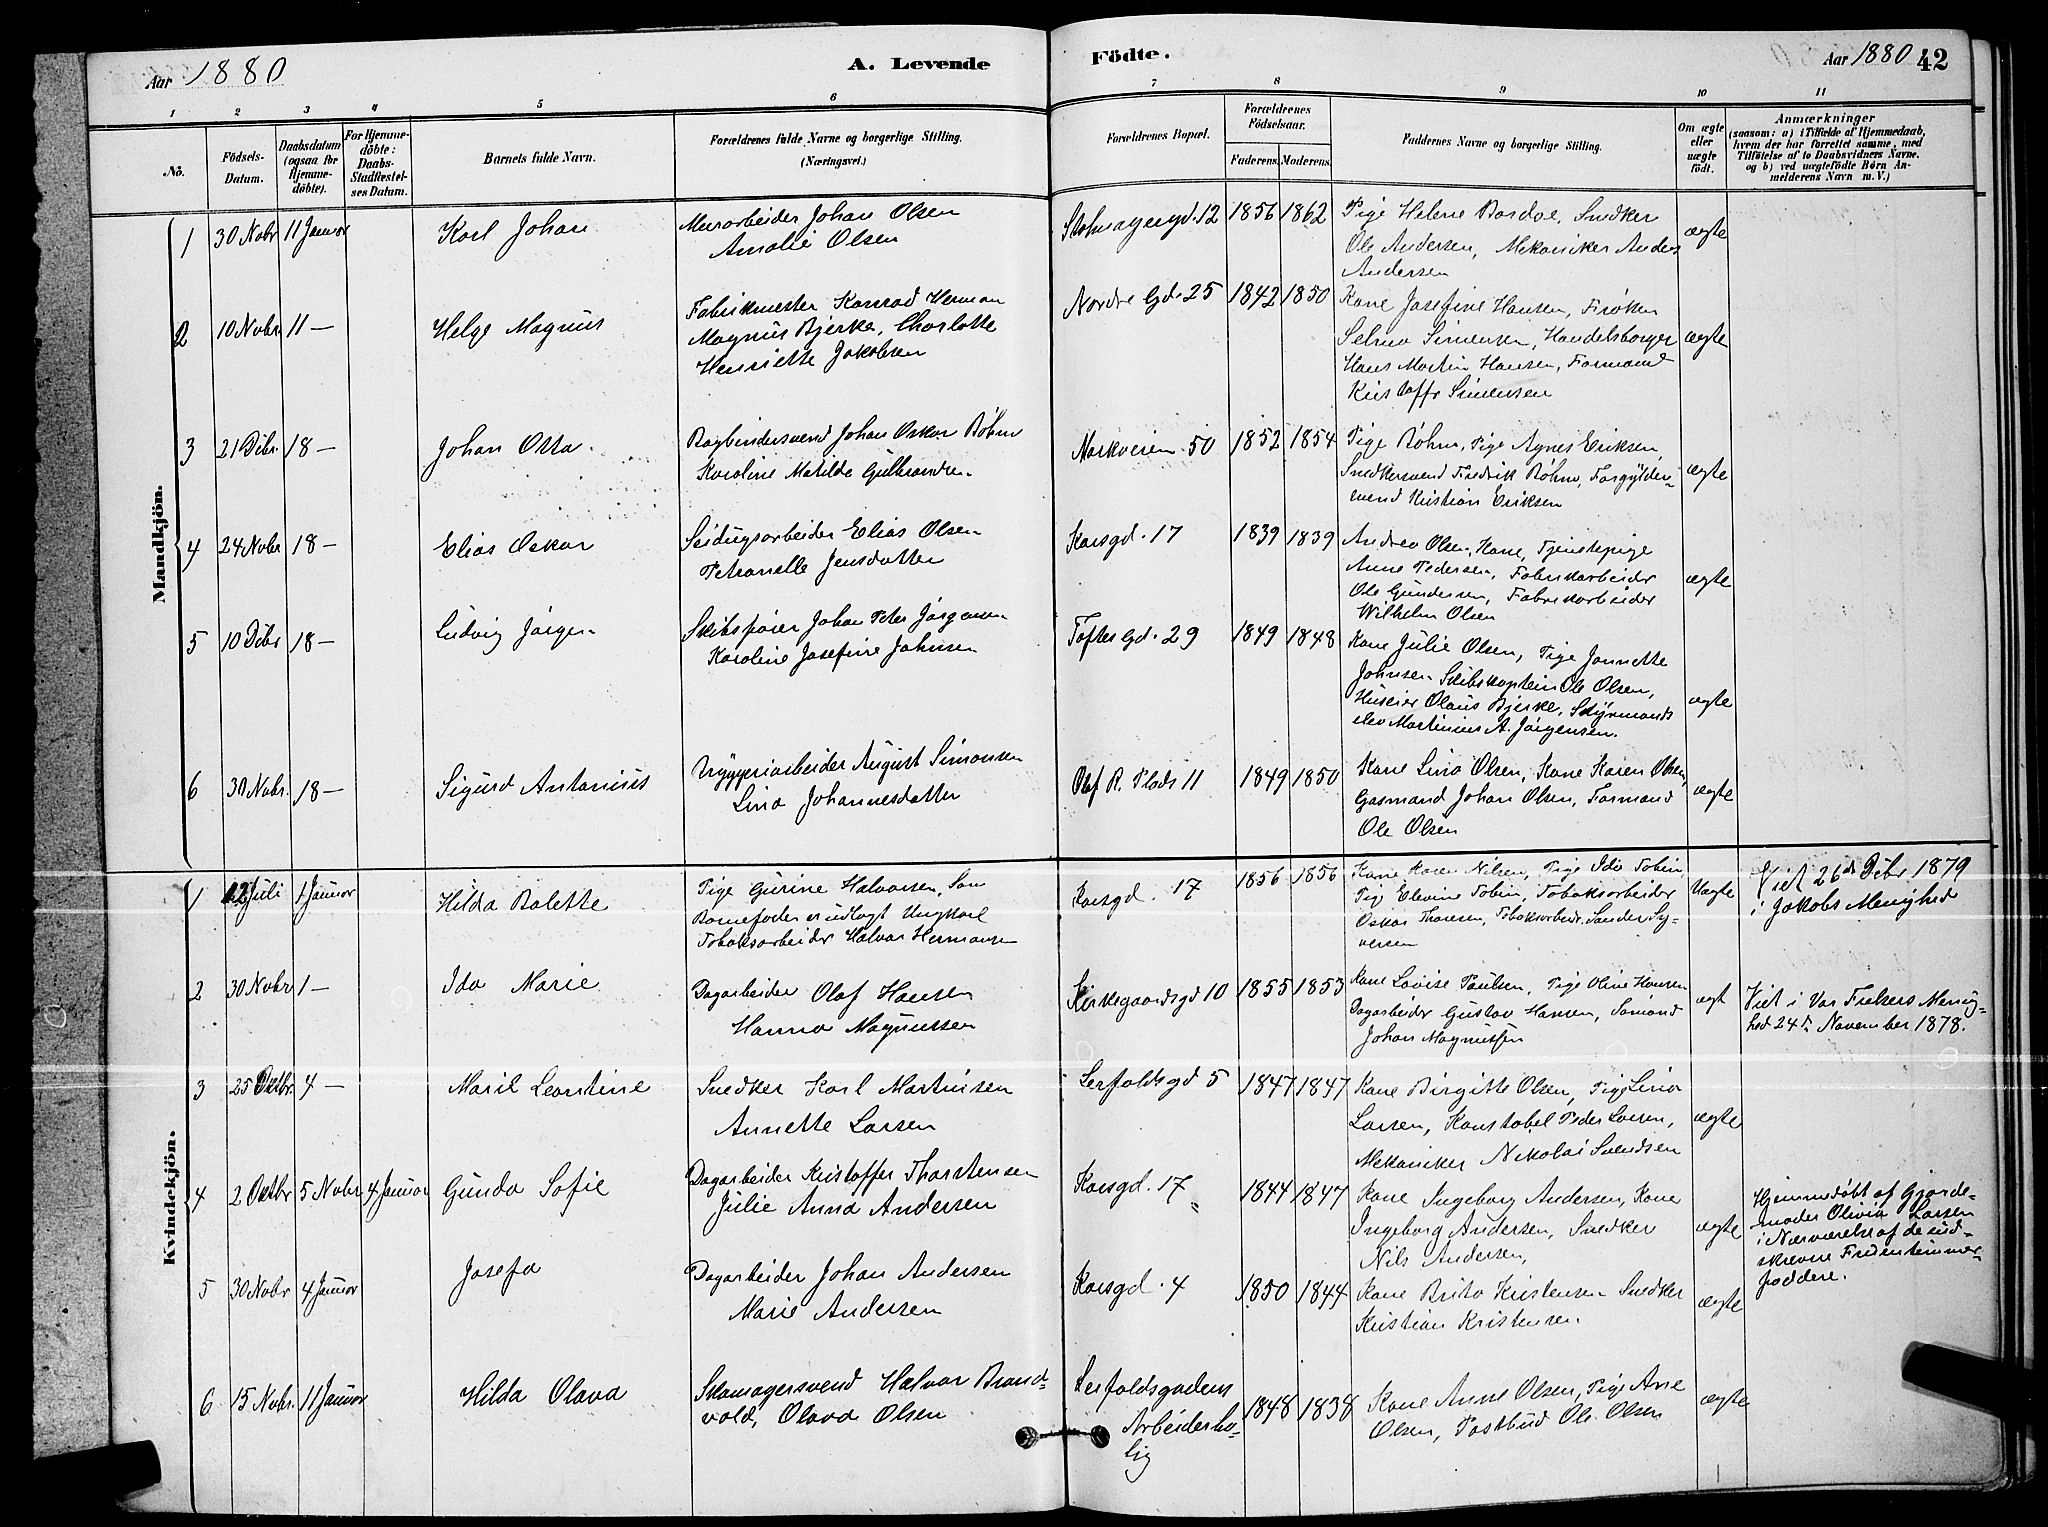 Aar 1880
A. Levende
Födte.
Aar 1880
42
1 2 3 4 5 6 7 8 9 10 11
No.
Födsels-
Datum.
Daabsdatum
(ogsaa for
Hjemme-
döbte).
For Hjemme-
döbte:
Daabs-
Stadfæstel-
ses Datum.
Barnets fulde Navn.
Forældrenes fulde Navne og borgerlige Stilling.
(Næringsvei.)
Forældrenes Bopæl.
Forældrenes
Födselsaar.
Faderens. Moderens.
Faddernes Navne og borgerlige Stilling.
Om ægte
eller
uægte
født.
Anmærkninger
(saasom: a) i Tilfælde af Hjemmedaab,
hvem der har forrettet samme, med
Tilföielse af to Daabsvidners Navne.
og b) ved uægtefödte Börn An-
melderens Navn m. V.)
Mandkjön.
1 30 Nobr 11 Januar
Karl Johan
Murarbeider Johan Olsen
Amalie Olsen
Skomagergd. 12
1856 1862
Pige Helene Bardoe, Snedker
Ole Andersen, Mekaniker Anders
Andersen
ægte
2 10 Nobr 11 —
Helge Magnus
Fabrikmester Konrad Herman
Magnus Bjerke, Charlotte
Henriette Jakobsen
Nordre Gd. 25
1842 1850
Kone Josefine Hansen, Frøken
Selma Simensen, Handelsborger
Hans Martin Hansen, Formand
Kristoffr Simensen
ægte
3 21 Dcbr. 18 —
Johan Otto
Bogbindersvend Johan Oskar Bøhm
Karoline Matilde Gulbrandsen
Markveien 50
1852 1854
Pige Bøhm, Pige Agnes Eriksen,
Snedkersvend Fredrik Bøhm, Forgylder-
svend Kristian Eriksen
ægte
4 24 Nobr 18 —
Elias Oskar
Seidugsarbeider Elias Olsen
Petronelle Jensdatter
Korsgd. 17
1839 1839
Andrea Olsen, Kone, Tjenestepige
Anne Pedersen, Fabrikarbeider
Ole Gundersen, Fabrikarbeider
Wilhelm Olsen
ægte
5 10 Dcbr 18 —
Ludvig Jørgen
Skibsfører Johan Peter Jørgensen
Karoline Josefine Johnsen
Toftes Gd. 29
1849 1848
Kone Julie Olsen, Pige Jannette
Johnsen Skibskaptein Ole Olsen,
Huseier Olaus Bjerke, Styrmands
elev Martinius A. Jørgensen.
ægte
6 30 Nobr. 18 —
Sigurd Antonius
Bryggeriarbeider August Simonsen
Lina Johannesdatter
Olaf R. Plads 11
1849 1850
Kone Lina Olsen, Kone Karen Olsen,
Gasmand Johan Olsen, Formand
Ole Olsen
ægte
Kvindekjön.
1 12 Juli 1 Januar
Hilda Bolette
Pige Gurine Halvorsen, Som
Barnefader er udlagt Ungkarl
Tobaksarbeider Halvor Hermansen
Korsgd. 17
1856 1856
Kone Karen Nilsen, Pige Ida Tobin,
Pige Elevine Tobin, Tobaksarbeider
Oskar Thoresen, Tobaksarbeidr. Sander Sy-
versen
Uægte
Viet 26de Dcbr 1879
i Jakobs Menighed
2 30 Nobr 1 —
Ida Marie
Dagarbeider Olaf Hansen
Hanna Magnussen
Kirkegaardsgd 10
1855 1853
Kone Lovise Paulsen, Pige Oline Hansen
Dagarbeider Gustav Hansen, Sømand
Johan Magnussen
ægt
Viet i Vor Frelsers Menig-
hed 24de November 1878.
3 25 Oktbr. 4 —
Maril Leontine
Snedker Karl Martinsen
Annette Larsen
Lerfaldsgd 5
1847 1847
Kone Birgitte Olsen, Pige Lina
Larsen, Konstabel Peder Larsen,
Mekaniker Nikolai Svendsen
ægte
4 2 Oktbr 5 Nobr 4 Januar
Gunda Sofie
Dagarbeider Kristoffer Thorstensen
Julie Anna Andersen
Korsgd. 17
1844 1847
Kone Ingeborg Andersen, Kone
Ingeborg Andersen, Snedker
Nils Andersen,
ægte
Hjemmedøbt af Gjorde-
moder Olivia Larsen
i Nærværelse af de ind-
skrevne Fredentimmer-
faddere.
5 30 Nobr 4 Januar
Josefa
Dagarbeider Johan Andersen
Marie Andersen
Korsgd. 4
1850 1844
Kone Brita Kristensen Snedker
Kristian Kristensen
ægte
6 15 Nobr. 11 Januar
Hilda Olava
Skomagersvend Halvor Brand-
vold, Olava Olsen
Lerfaldsgadens
Arbeiderbo-
lig
1848 1838
Kone Anne Olsen, Pige Ane
Olsen, Postbud Ole Olsen
ægte